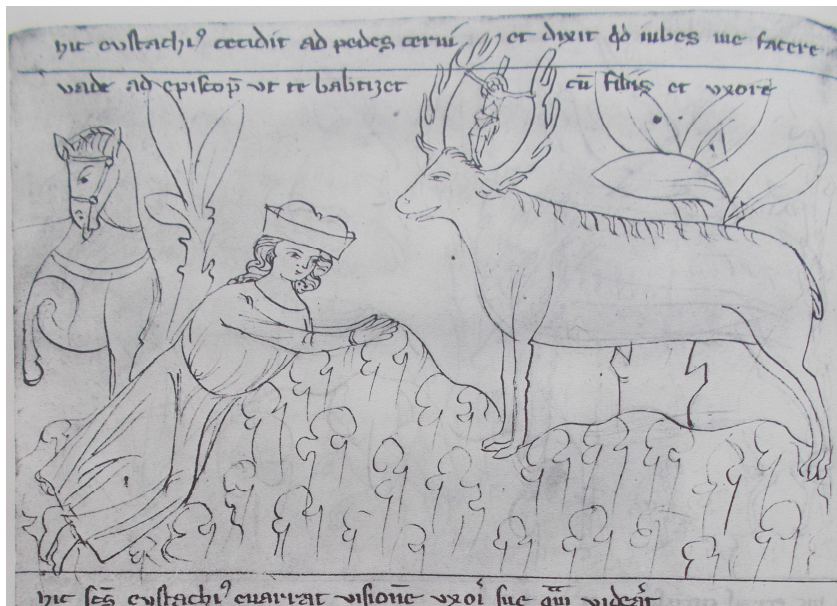 hic eustachiꝰ cecidit ad pedes cerui et dixit qd̄ iubes me facere
uade ad episcop̄ ut te babtizet cū filiis et uxore
hic scs̄ eustachiꝰ enarrat uisionē uxori sue uiderat